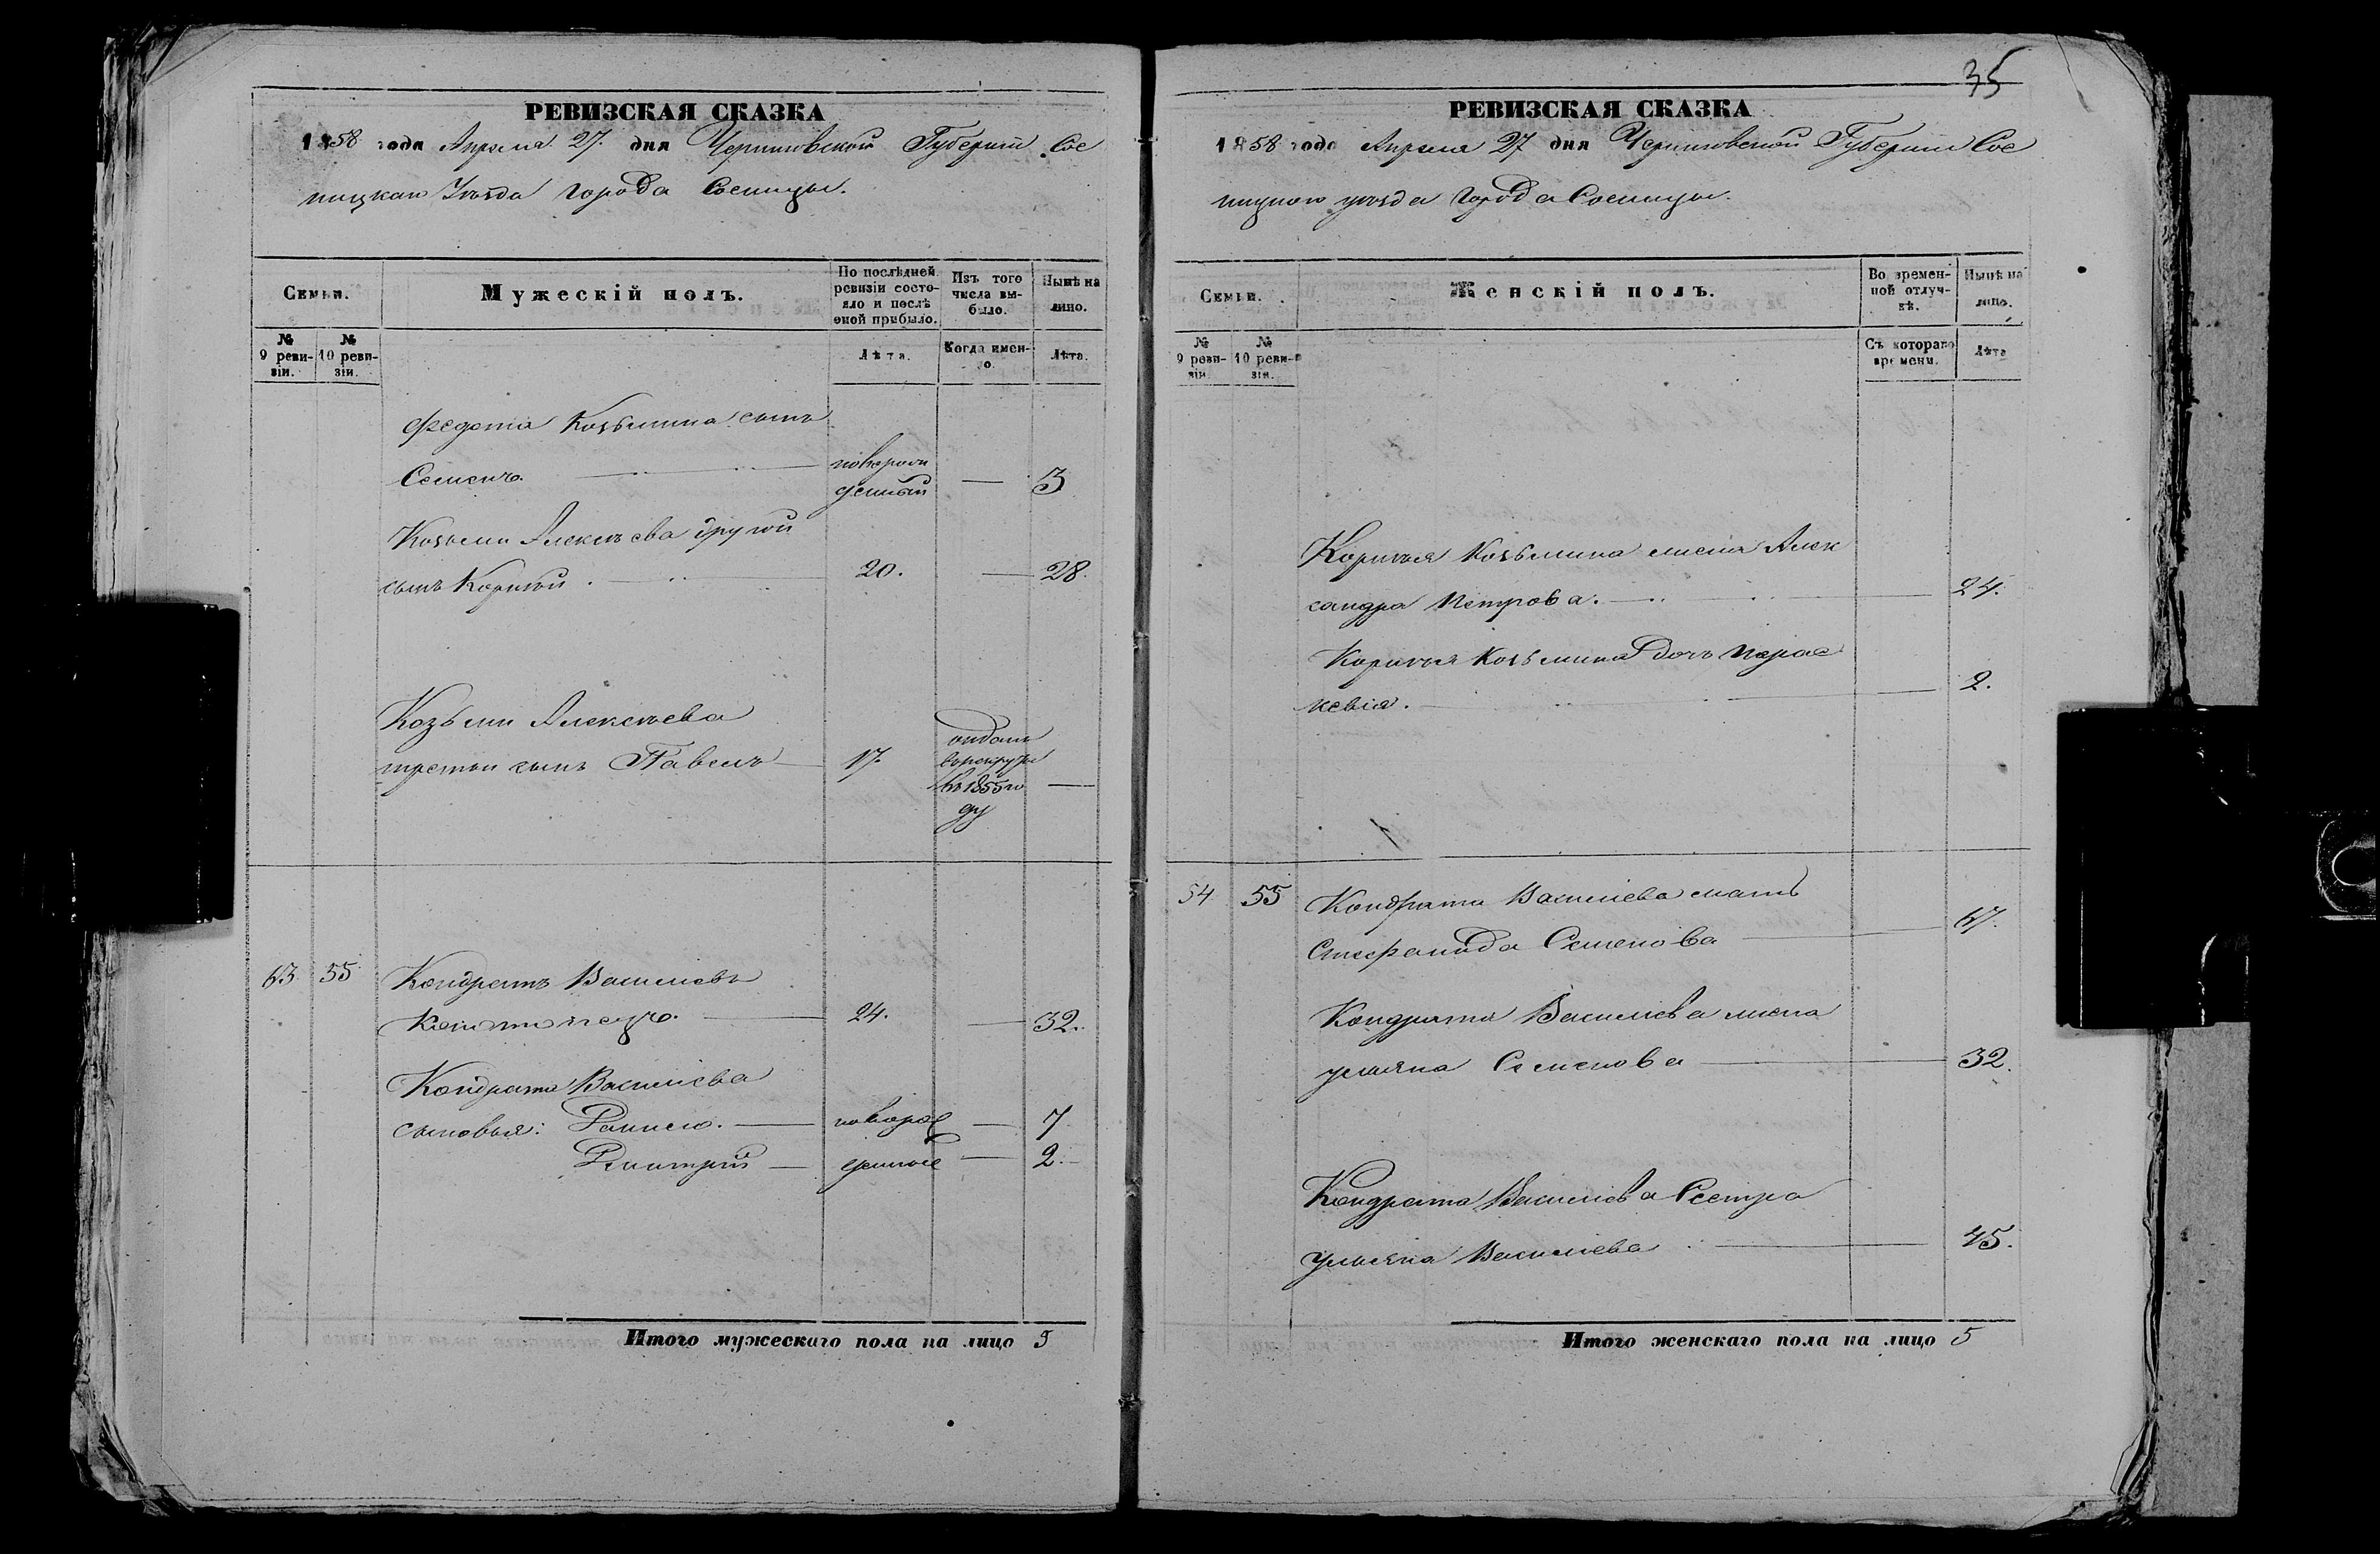 РЕВИЗСКАЯ СКАЗКА
1858 года Апреля 27. дня Черниговской Губерніи Сос
ницкаго Уѣзда города Сосницы.
Семьи.
Мужескій полъ.
По послѣдней ревизіи состояло и послѣ оной прибыло.
Изъ того числа выбыло.
Нынѣ на лицо.
№ 9 ревизіи.
№ 10 ревизіи.
Лѣта.
Когда именно.
Лѣта.
Федота Козьмина сынъ
Семенъ новорож
денный — 3
Козьмы Алексѣева другой
сынъ Корнѣй 20. — 28.
Козьмы Алексѣева
третій сынъ Павелъ 17.
отданъ
въ рекруты
въ 1855 го
ду —
63. 55 Кондратъ Васильевъ
24. — 32.
Кондрата Васильева
сыновья: Данило. — новорож — 7
Дмитрій — денные — 2.
Итого мужескаго пола на лицо 5
35
РЕВИЗСКАЯ СКАЗКА
1858 года Апреля 27 дня Черниговской Губерніи Сос
ницкого уѣзда города Сосницы.
Семьи.
Женскій полъ.
Во временной отлучкѣ.
Нынѣ на лицо.
№ 9 ревизіи.
№ 10 ревизіи.
Съ котораго времени.
Лѣта
Корнѣя Козьмина жена Алек
сандра Петрова. — 24.
Корнѣя Козьмина дочь Парас
кевія. — 2.
54 55 Кондрата Васильева мать
Стефанида Семенова — 67.
Кондрата Васильева жена
ульяна Семенова — 32.
Кондрата Васильева Сестра
ульяна Васильева — 45.
Итого женскаго пола на лицо 5